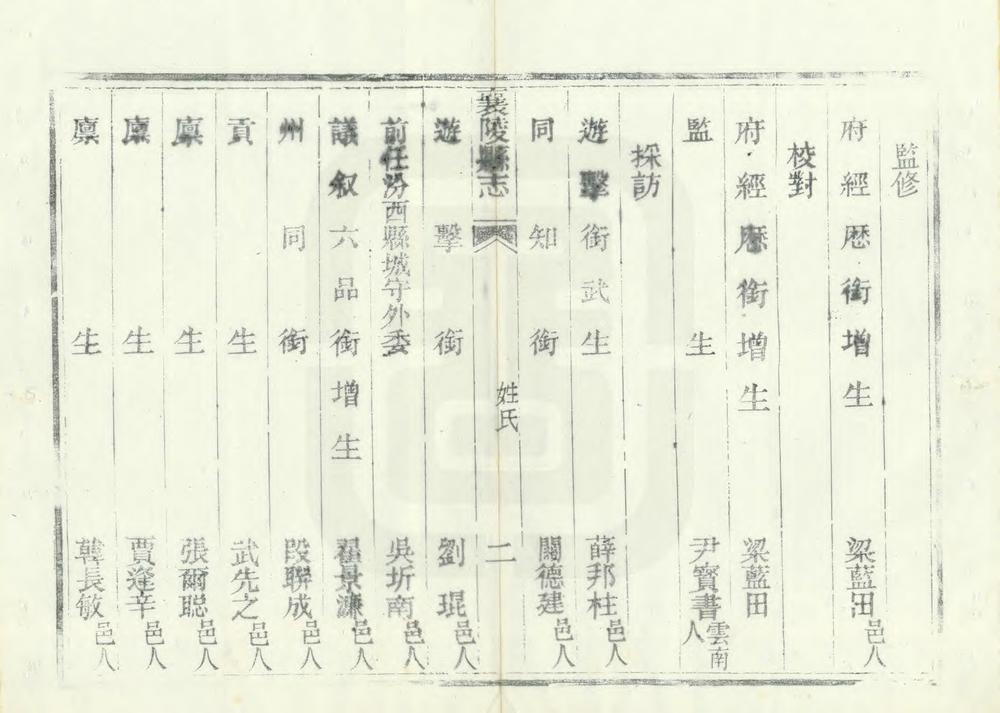 監修
府經厯銜增生 梁藍田邑人
校對
府經厯銜增生 梁藍田
監生 尹寳書雲南人
採訪
遊擊銜武生 薛邦柱邑人
同知銜 關德建邑人
襄陵縣志 姓氏 二
遊擊銜 劉琨邑人
前任汾西縣城守外委 吳圻南邑人
議叙六品銜增生 翟景濂邑人
州同銜 段聯成邑人
貢生 武先之邑人
廪生 張爾聦邑人
廪生 賈逢辛邑人
廪生 韓長敏邑人